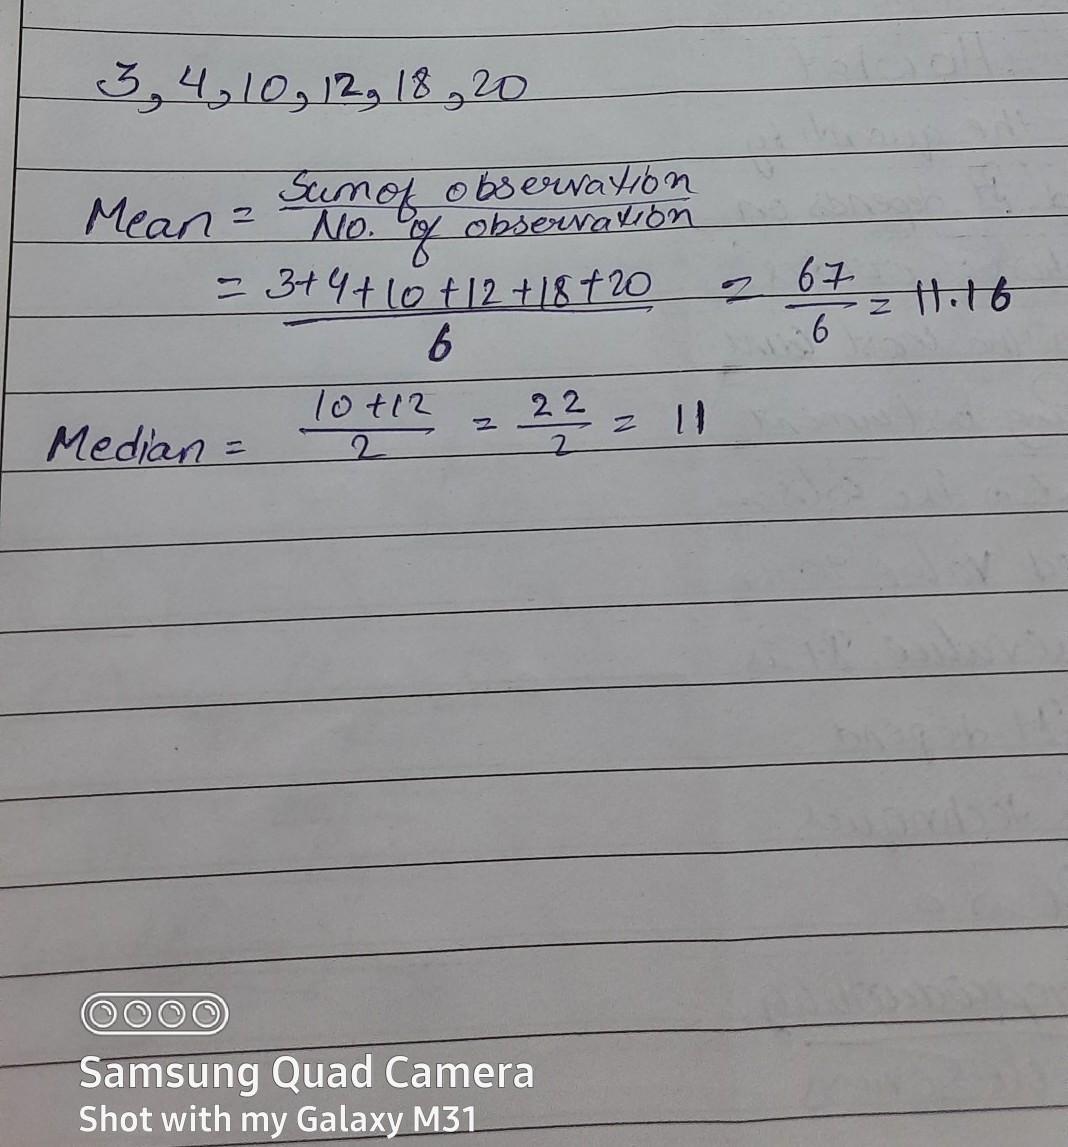 3, 4, 10, 12, 18, 20
Mean = Sum of observation / No. of observation
= 3+4+10+12+18+20 / 6 = 67/6 = 11.16
Median = 10+12 / 2 = 22/2 = 11
Samsung Quad Camera
Shot with my Galaxy M31